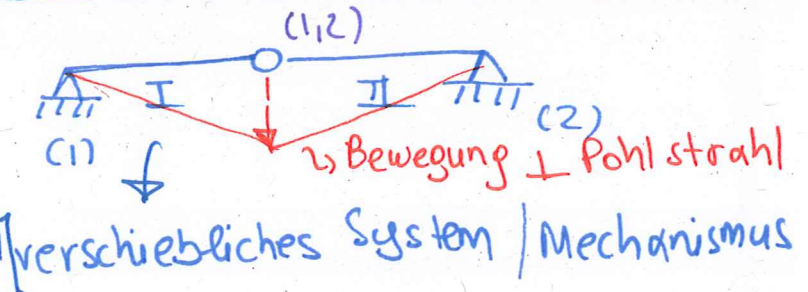 (1,2)
I II
(1) (2)
↳ Bewegung ⊥ Pohlstrahl
verschiebliches System / Mechanismus